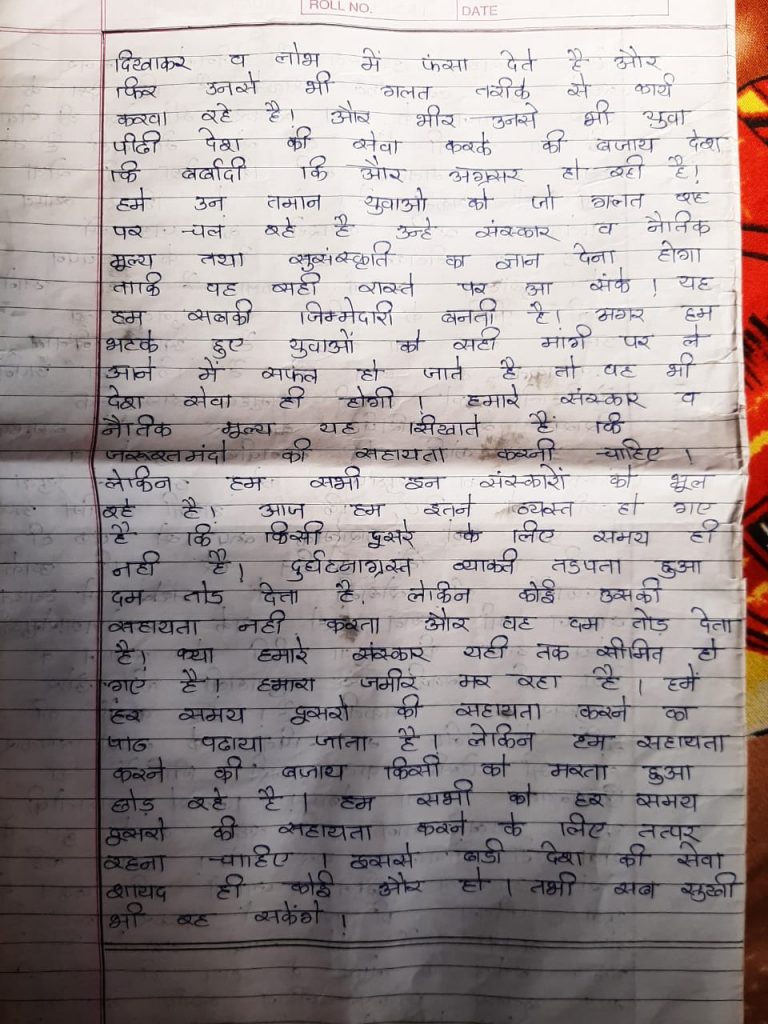 ROLL NO.
DATE
दिखाकर व लोभ में फंसा देते है और
फिर उनसे भी गलत तरीके से कार्य
करवा रहे है। और भीर उनसे भी युवा
पीढी देश की सेवा करके की बजाय देश
कि बर्बादी कि और अग्रसर हो रही है।
हमे उन तमान युवाओ को जो गलत राह
पर चल रहे है उन्हे संस्कार व नैतिक
मूल्य तथा सुसंस्कृति का ज्ञान देना होगा
ताकि वह सही रास्ते पर आ सके। यह
हम सबकी जिम्मेदारी बनती है। अगर हम
भटके हुए युवाओं को सही मार्ग पर ले
आने में सफल हो जाते है तो वह भी
देश सेवा ही होगी। हमारे संस्कार व
नैतिक मूल्य यह सिखाते है कि
जरूरतमंदो की सहायता करनी चाहिए।
लेकिन हम सभी इन संस्कारों को भूल
रहे है। आज हम इतने व्यस्त हो गए
है कि किसी दुसरे के लिए समय ही
नही है। दुर्घटनाग्रस्त व्यक्ति तडपता हुआ
दम तोड देता है। लेकिन कोई उसकी
सहायता नही करता और वह दम तोड देता
है। क्या हमारे संस्कार यही तक सीमित हो
गए है। हमारा जमीर मर रहा है। हमें
हर समय दुसरो की सहायता करने का
पाठ पढाया जाता है। लेकिन हम सहायता
करने की बजाय किसी को मरता हुआ
छोड रहे है। हम सभी को हर समय
दुसरो की सहायता करने के लिए तत्पर
रहना चाहिए। इससे बडी देश की सेवा
शायद ही कोई और हो। तभी सब सुखी
भी रह सकेंगे।